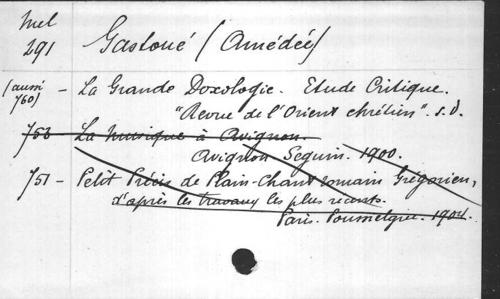 Mel
291 Gastoué (Amédée)
(aussi
760) - La Grande Doxologie. Etude Critique.
"Revue de l'Orient chrétien". s.d.
753 La musique à Avignon.
Avignon Seguin. 1900.
751 - Petit Précis de Plain-Chant romain Grégorien,
d'après les travaux les plus récents.
Paris. Poussielgue. 1904.